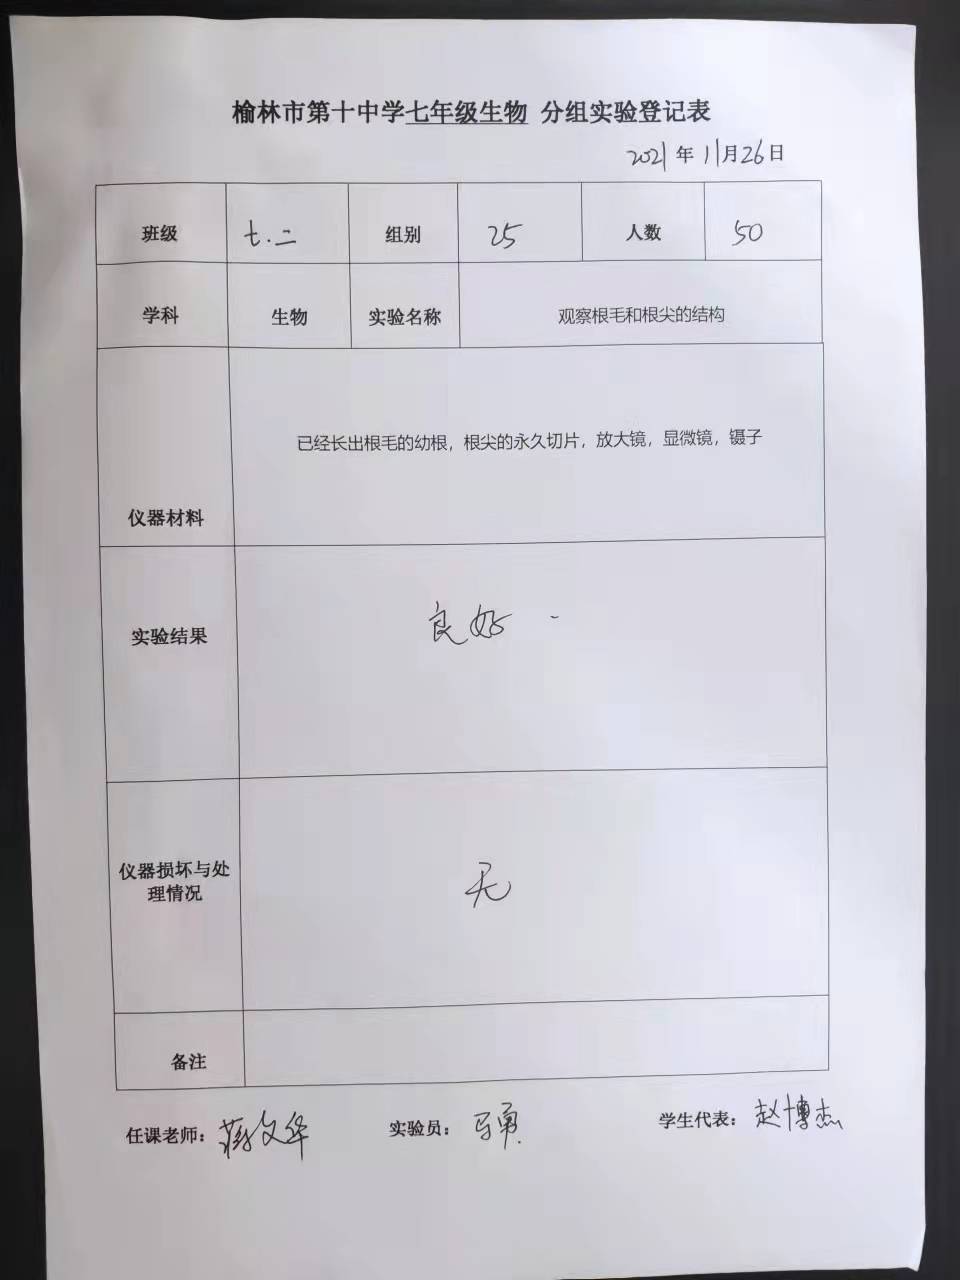 榆林市第十中学七年级生物 分组实验登记表
2021年11月26日
班级 七.二 组别 25 人数 50
学科 生物 实验名称 观察根毛和根尖的结构
已经长出根毛的幼根，根尖的永久切片，放大镜，显微镜，镊子
仪器材料
实验结果 良好
仪器损坏与处
理情况
无
备注
任课老师：蒋文华 实验员：马勇 学生代表：赵博杰